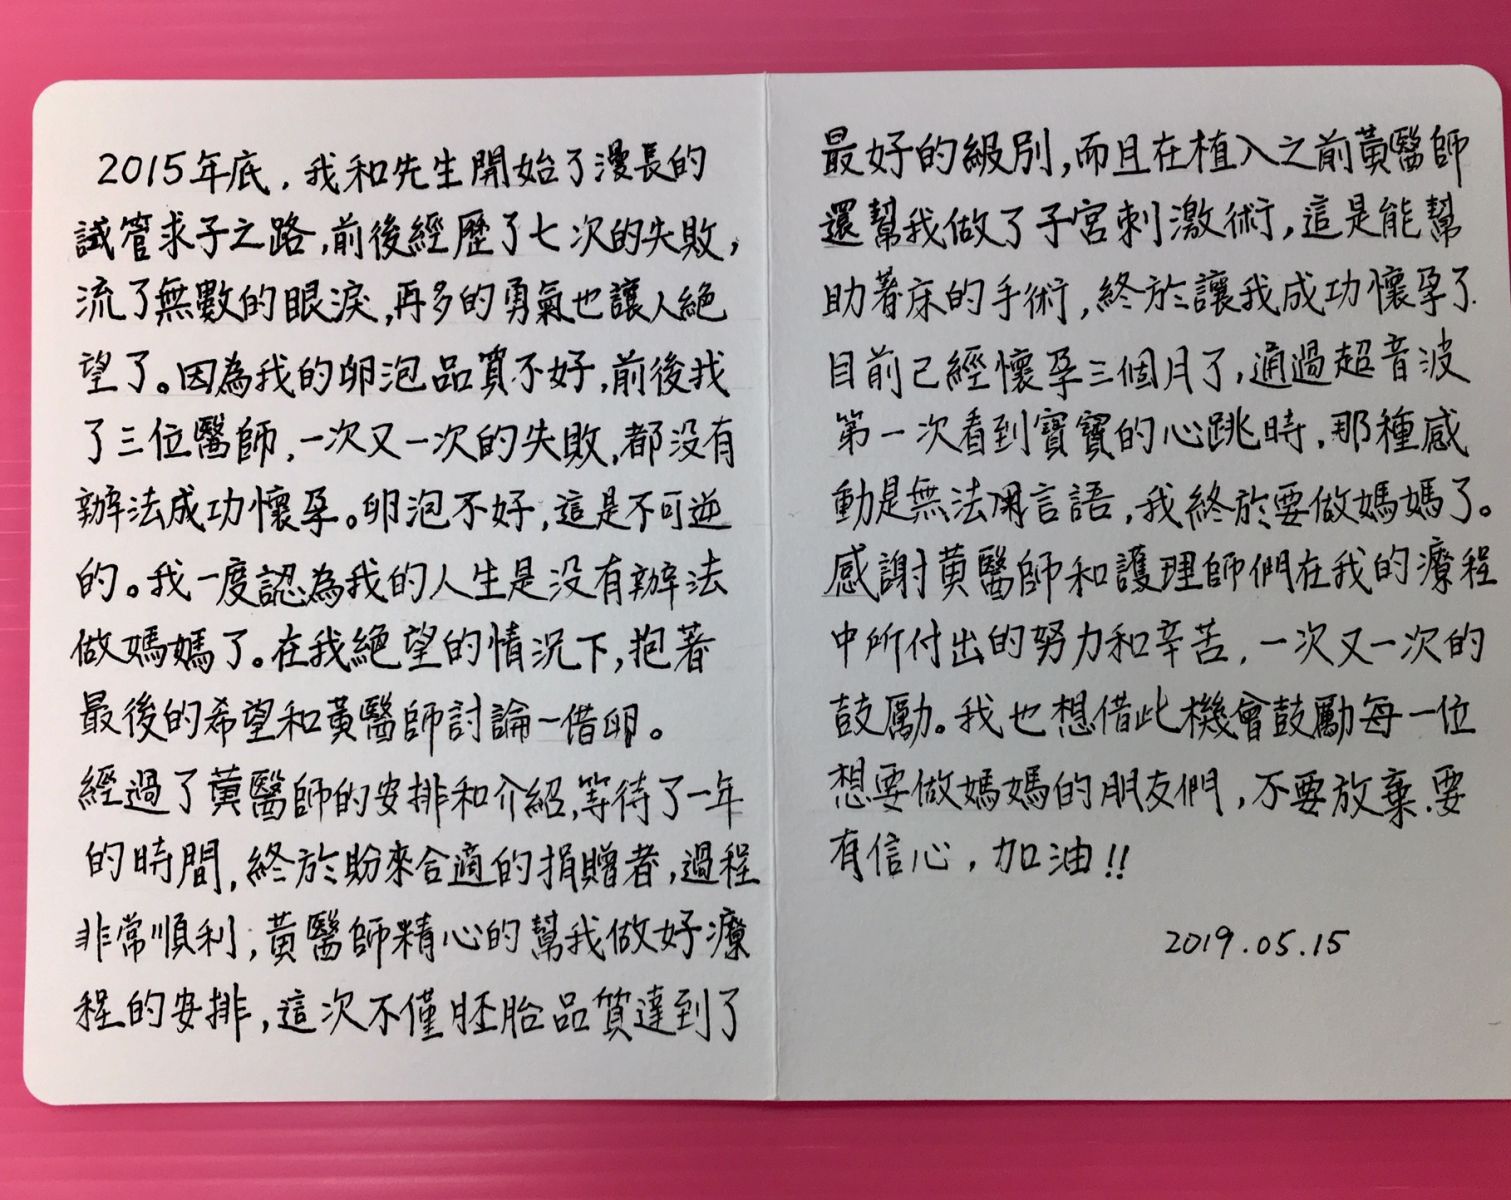 2015年底，我和先生開始了漫長的
試管求子之路，前後經歷了七次的失敗，
流了無數的眼淚，再多的勇氣也讓人絕
望了。因為我的卵泡品質不好，前後找
了三位醫師，一次又一次的失敗，都没有
辦法成功懷孕。卵泡不好，這是不可逆
的。我一度認為我的人生是没有辦法
做媽媽了。在我絕望的情況下，抱著
最後的希望和黃醫師討論一借卵。
經過了黃醫師的安排和介紹，等待了一年
的時間，終於盼來合適的捐贈者，過程
非常順利，黃醫師精心的幫我做好療
程的安排，這次不僅胚胎品質達到了
最好的級別，而且在植入之前黃醫師
還幫我做了子宮刺激術，這是能幫
助著床的手術，終於讓我成功懷孕了.
目前已經懷孕三個月了，通過超音波
第一次看到寶寶的心跳時，那種感
動是無法用言語，我終於要做媽媽了。
感謝黃醫師和護理師們在我的療程
中所付出的努力和辛苦，一次又一次的
鼓勵。我也想借此機會鼓勵每一位
想要做媽媽的朋友們，不要放棄.要
有信心，加油!!
2019.05.15